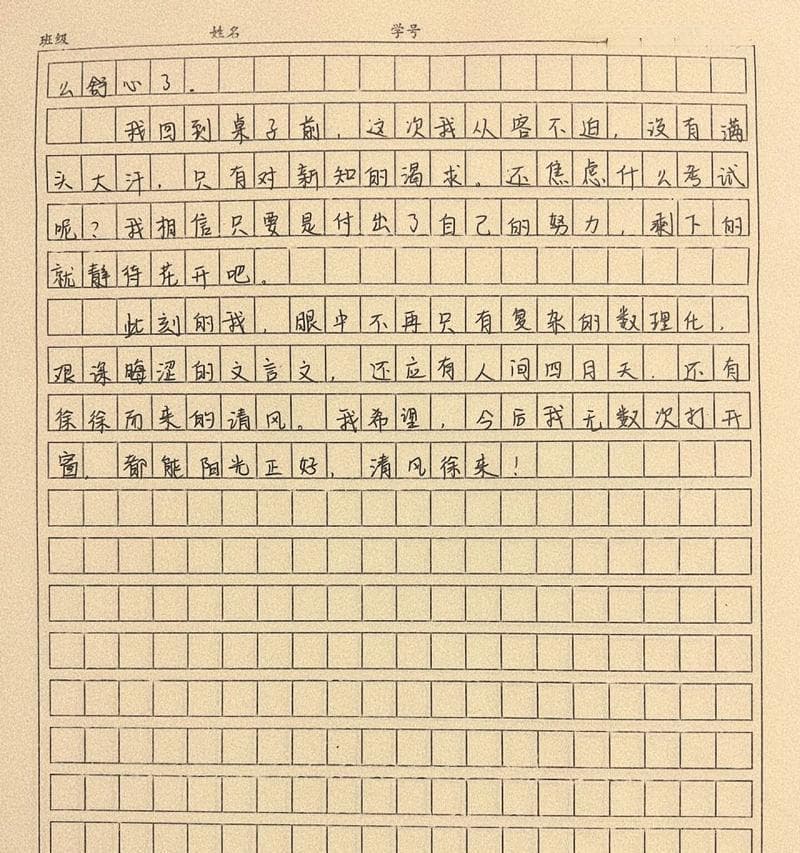 班级 姓名 学号
么舒心了.
我回到桌子前,这次我从容不迫,没有满
头大汗,只有对新知的渴求。还焦虑什么考试
呢?我相信只要是付出了自己的努力,剩下的
就静待花开吧。
此刻的我,眼中不再只有复杂的数理化,
艰涤晦涩的文言文,还应有人间四月天.还有
徐徐而来的清风。我希望,今后我无数次打开
窗,都能阳光正好,清风徐来!